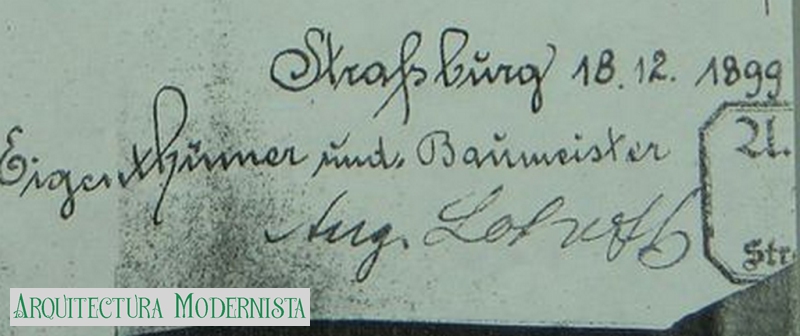 Straßburg 18.12. 1899
Eigenthümer und Baumeister
Aug.
A.
Str
ARQUITECTURA MODERNISTA